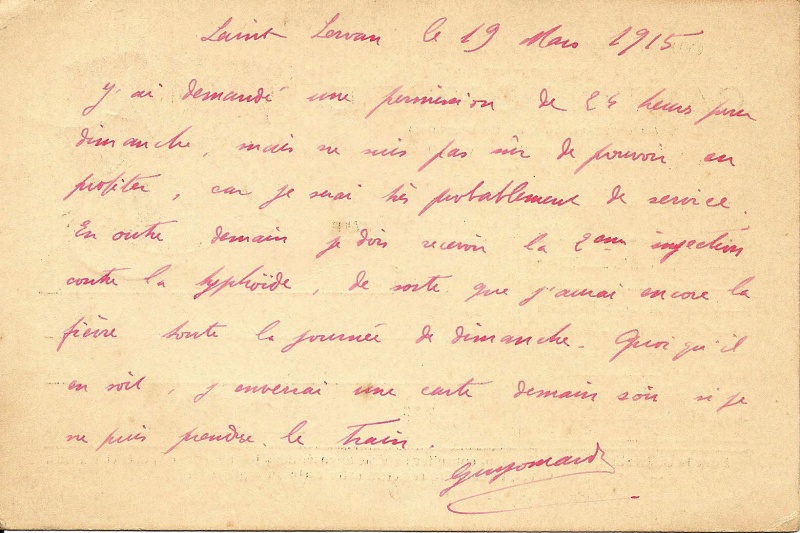 Saint Servan le 19 Mars 1915
J'ai demandé une permission de 24 heures pour
dimanche, mais ne suis pas sûr de pouvoir en
profiter, car je serai très probablement de service.
En outre demain je dois recevoir la 2eme injection
contre la typhoïde, de sorte que j'aurai encore la
fièvre toute la journée de dimanche. Quoi qu'il
en soit, j'enverrai une carte demain soir si je
ne puis prendre le train.
Guyomard